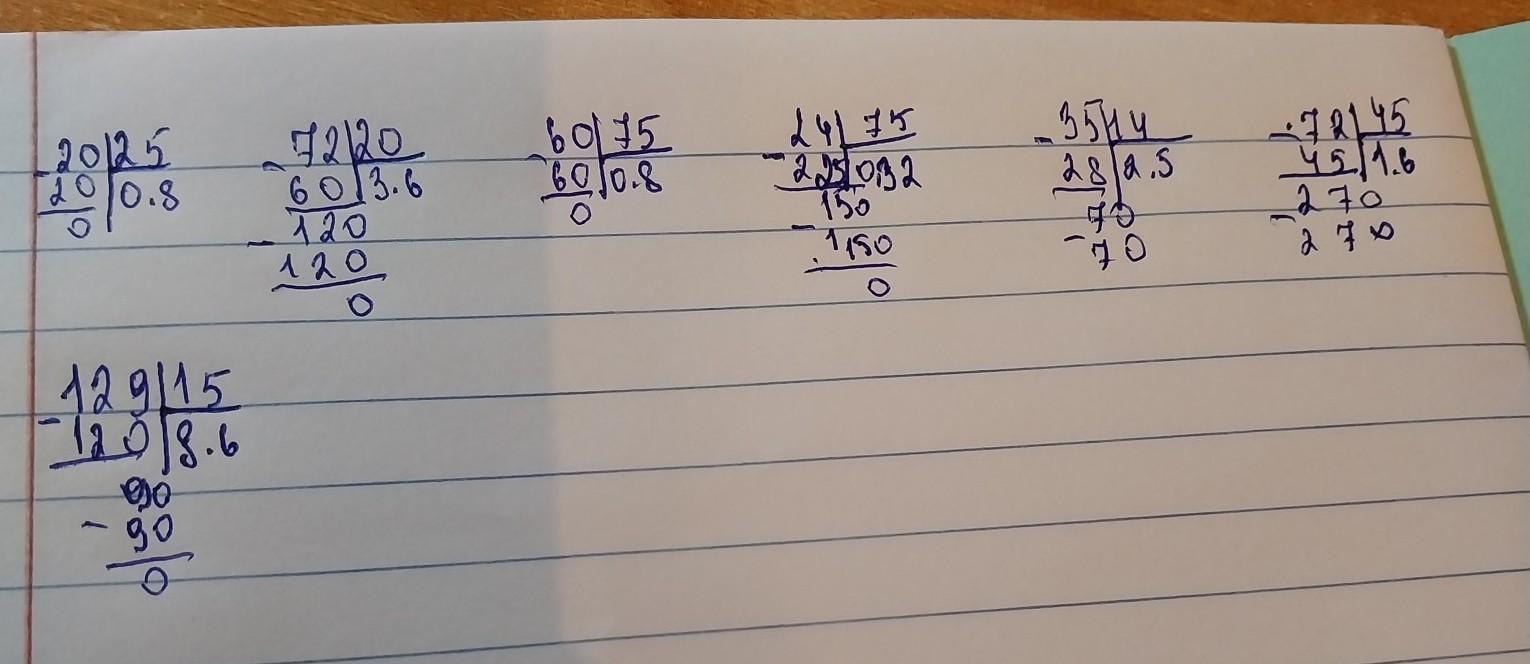 20|25 72|20 60|75 24|75 35|14 72|45
-20|0.8 -60|3.6 -60|0.8 -225|0.32 -28|2.5 -45|1.6
0 120 0 150 70 270
-120 -150 -70 -270
0 0
129|15
-120|8.6
90
-90
0